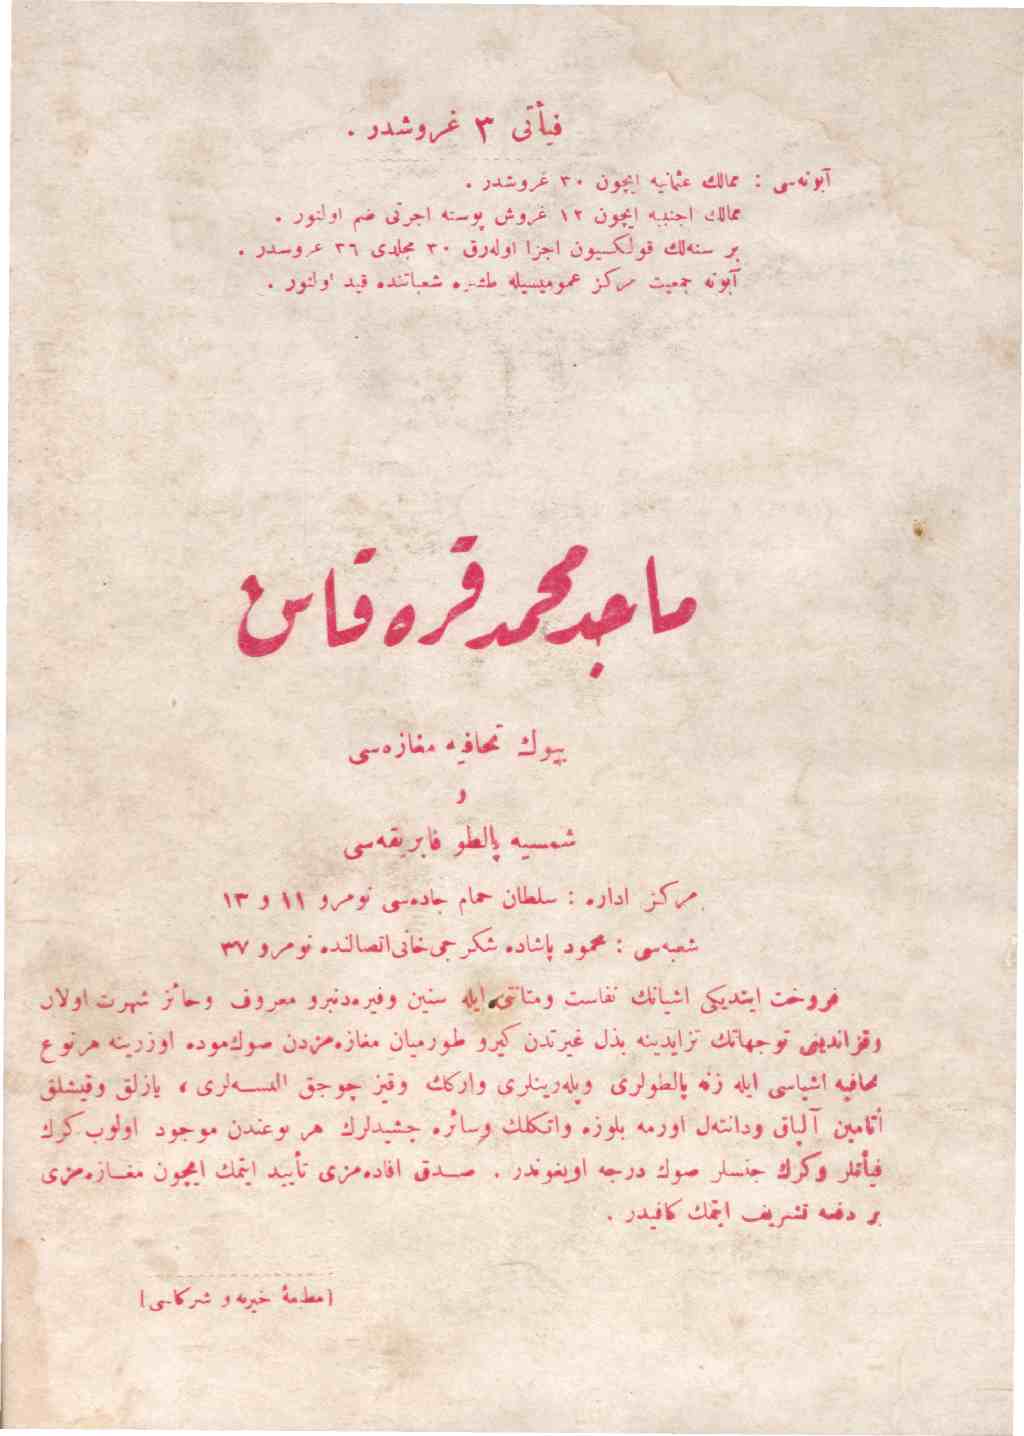 فیأتی ٣ غروشدر .
آبونه‌سی : ممالك عثمانیه ایچون ٣٠ غروشدر .
ممالك اجنبیه ایچون ١٢ غروش پوسته اجرتی ضم اولنور .
بر سنه‌لك قولکسیون اجزا اوله‌رق ٣٠ مجلدی ٣٦ غروشدر .
آبونه جمعیت مرکز عمومیسیله طشره شعباتنده قید اولنور .
ماجد محمد قره قاش
بیوك تحافیه مغازه‌سی
و
شمسیه پالطو فابریقه‌سی
مرکز اداره : سلطان حمام جاده‌سی نومرو ١١ و ١٣
شعبه‌سی : محمود پاشاده شکرجی‌خانی‌اتصالنده نومرو ٣٧
فروخت ایتدیکی اشیانك نفاست ومتانتی ایله سنین وفیره‌دنبرو معروف وحائز شهرت اولان
وقزاندیغی توجهاتك تزایدینه بذل غیرتدن کیرو طورمیان مغازه‌مزدن صوك‌موده اوزرینه هرنوع
تحافیه اشیاسی ایله زنه پالطولری وپله‌رینلری وارکك وقیز چوجق البسه‌لری ، یازلق وقیشلق
أتامین آلپاق ودانته‌ل اورمه بلوزه واتکلك وسائره جشیدلرك هر نوعندن موجود اولوب کرك
فیأتلر وکرك جنسلر صوك درجه اویغوندر . صدق افاده‌مزی تأیید ایتمك ایچون مغازه‌مزی
بر دفعه تشریف ایتمك کافیدر .
[مطبعهٔ خیریه و شرکاسی]